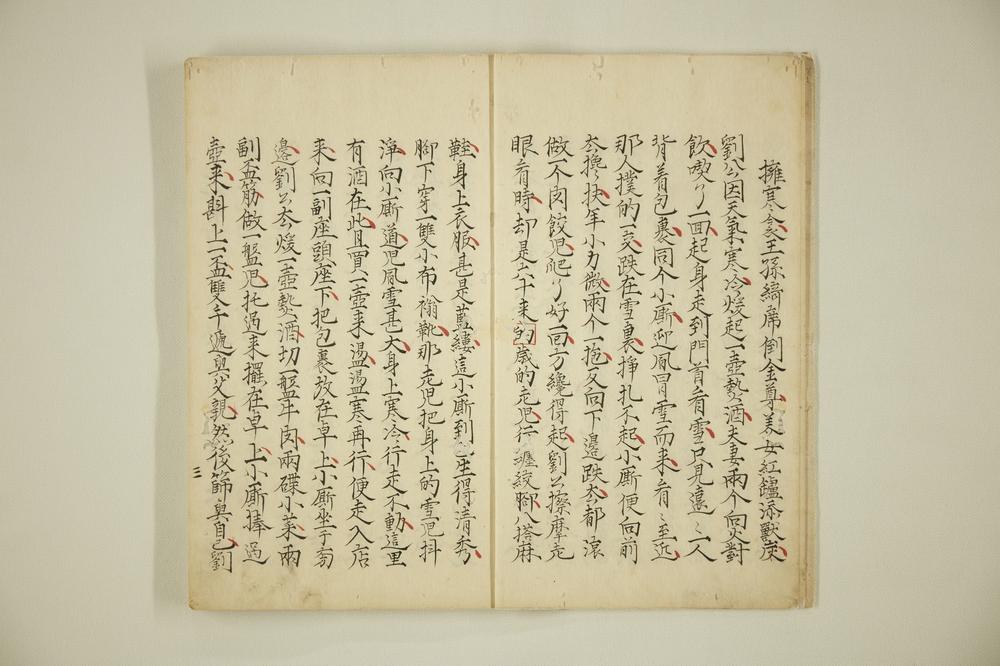 擁寒衾王孫綺席倒金尊美女紅鑪添獸炭
劉公因天氣寒冷煖起一壺熱酒夫妻兩个向火對
飲喫了一面起身走到門首看雪只見遠〻一人
背着包裹同个小廝迎風冐雪而来看〻至近
那人撲的一交跌在雪裏掙扎不起小廝便向前
去攙扶年小力微兩个一拖反向下邉跌去都滾
做一个肉餃児爬了好一回方纔得起劉公擦摩老
眼看時却是六十来的歳的老児行纏絞脚八搭麻
鞋身上衣服甚是藍縷這小廝到也座得清秀
脚下穿一雙小布䩺靴那老児把身上的雪児抖
淨向小廝道児風雪甚大身上寒冷行走不動這里
有酒在此且買一壺来盪盪寒再行便走入店
来向一副座頭座下把包裹放在卓上小廝坐于旁
邉劉公去煖一壺熱酒切一盤牛肉兩碟小菜兩
副盃筯做一盤児托過来擺在卓上小廝捧過
壺来斟上一盃雙手遞與父親然後篩與自己劉
三